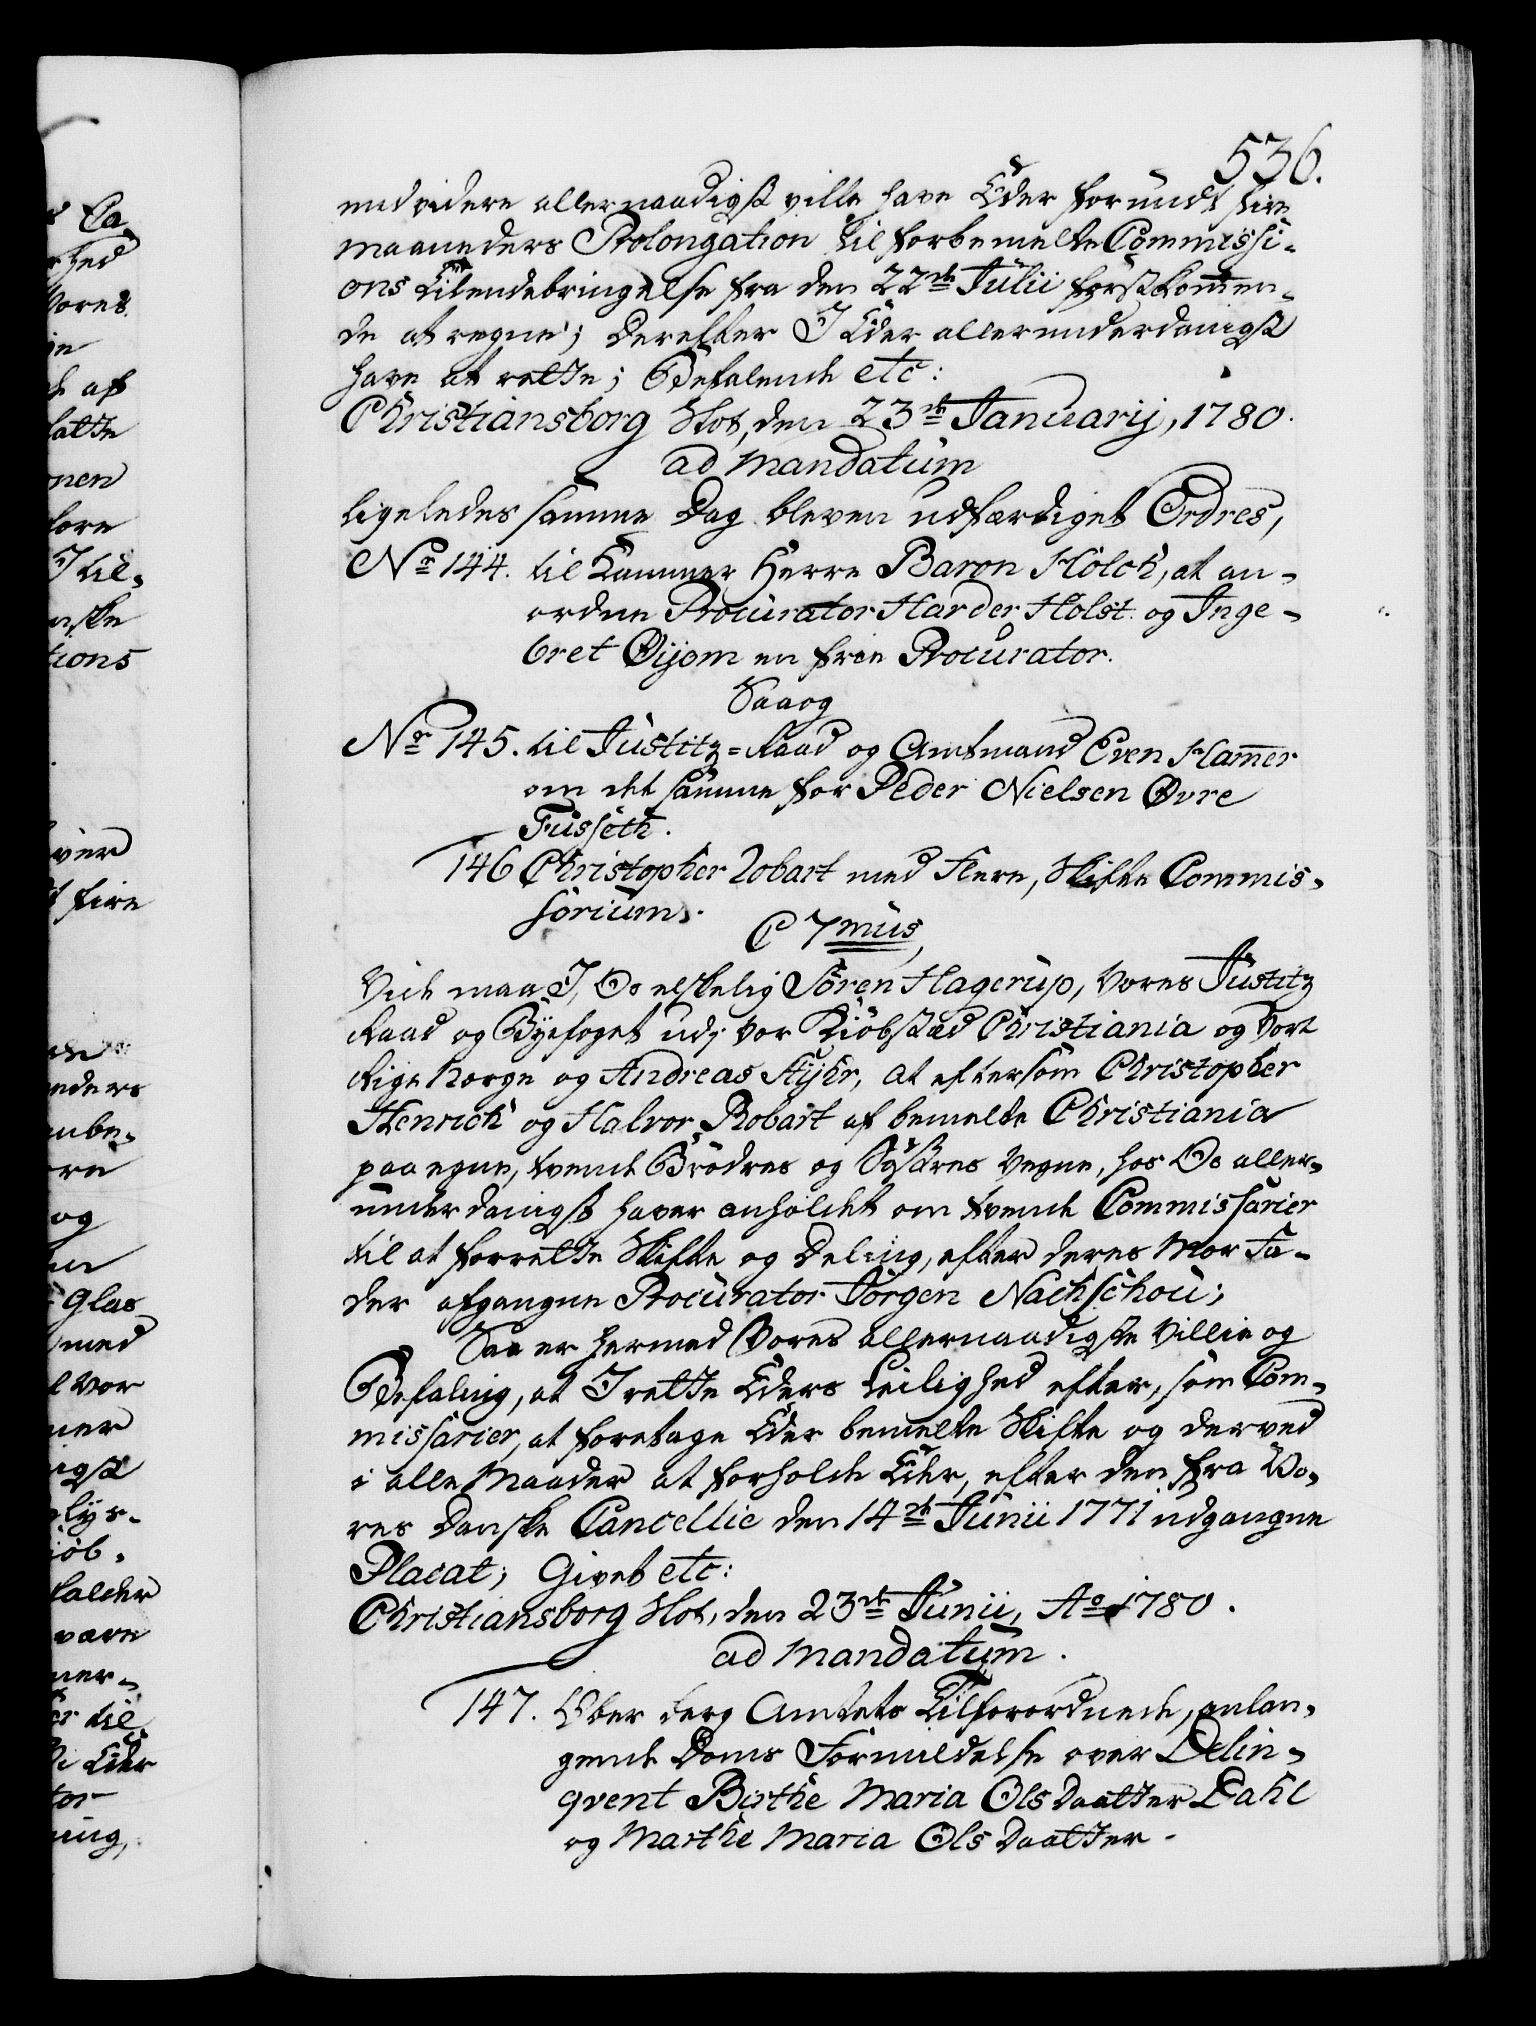 536.
endvidere allernaadigst ville have Eder forundt fire
maaneders Prolongation til forbemelte Commissi-
ons Tilendebringelse fra den 22de Julii førstkommen-
de at regne; Derefter I Eder allerunderdanigst
have at rette; Befalende etc:
Christiansborg Slot, den 23de Januarij, 1780.
ad Mandatum
Ligeledes samme Dag bleven udfærdiget Ordres,
No 144. til Kammer Herre Baron Holck, at an-
ordne Procurator Harder Holst og Inge-
bret Øijom en frie Procurator.
Saaog
No 145. til Justitz-Raad og Amtmand Even Hammer
om det samme for Peder Nielsen Øvre
Fusseth.
146 Christopher Robart med Flere, Skifte Commis-
sorium.
C 7mus,
Vide maa I, Os elskelig Sören Hagerup, Vores Justitz
Raad og Byefoget udj vor Kiøbstæd Christiania og Vort
Rige Norge og Andreas Kijhr, at eftersom Christopher
Henrich og Halvor Robart af bemelte Christiania
paa egne, tvende Brödres og Søstres Vegne, hos Os aller-
underdanigst haver anholdet om tvende Commissarier
til at forrette Skifte og Deling, efter deres Mor Fa-
der afgangne Procurator Jörgen Nachschou;
Saa er hermed Vores allernaadigste Villie og
Befaling, at I rette Eders Leilighed efter, som Com-
missarier, at foretage Eder bemelte Skifte og derved
i alle Maader at forholde Eder, efter den fra Vo-
res Danske Cancellie den 14de Junii 1771 udgangne
Placat; Givet etc:
Christiansborg Slot, den 23de Junii, Ao 1780.
ad Mandatum.
147. Over berg Amtets Tilforordnede, anlan-
gende Doms Formildelse over Delin-
qvent Birthe Maria Ols Daatter Dahl
og Marthe Maria Ols Daatter.